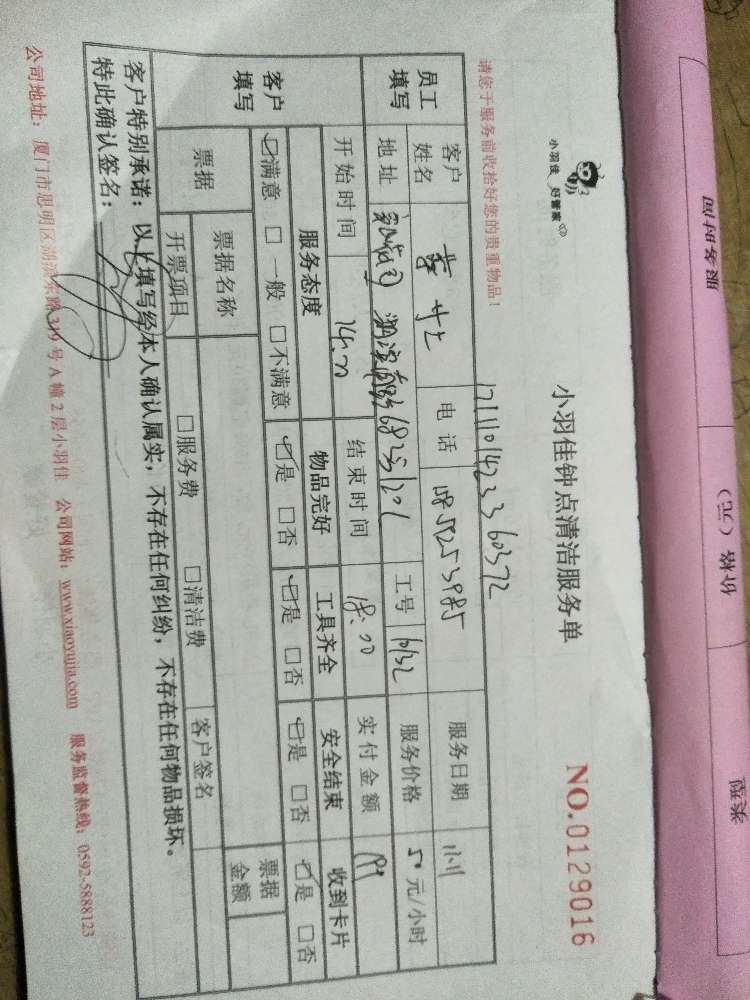 小羽佳 好管家
小羽佳钟点清洁服务单
NO.0129016
请您于服务前收拾好您的贵重物品!
员工填写
客户姓名
女士
电话
服务日期
地址
工号
服务价格 50 元/小时
客户填写
开始时间 14:00
结束时间 18:00
实付金额
服务态度
物品完好
工具齐全
安全结束
收到卡片
☑满意 □一般 □不满意
☑是 □否
☑是 □否
☑是 □否
☑是 □否
票据
票据名称
票据金额
开票项目
□服务费
□清洁费
客户签名
客户特别承诺:以上填写经本人确认属实,不存在任何纠纷,不存在任何物品损坏。
特此确认签名:
公司地址:厦门市思明区湖滨东路319号A幢2层小羽佳 公司网站:www.xiaoyujia.com 服务监督热线:0592-5888123